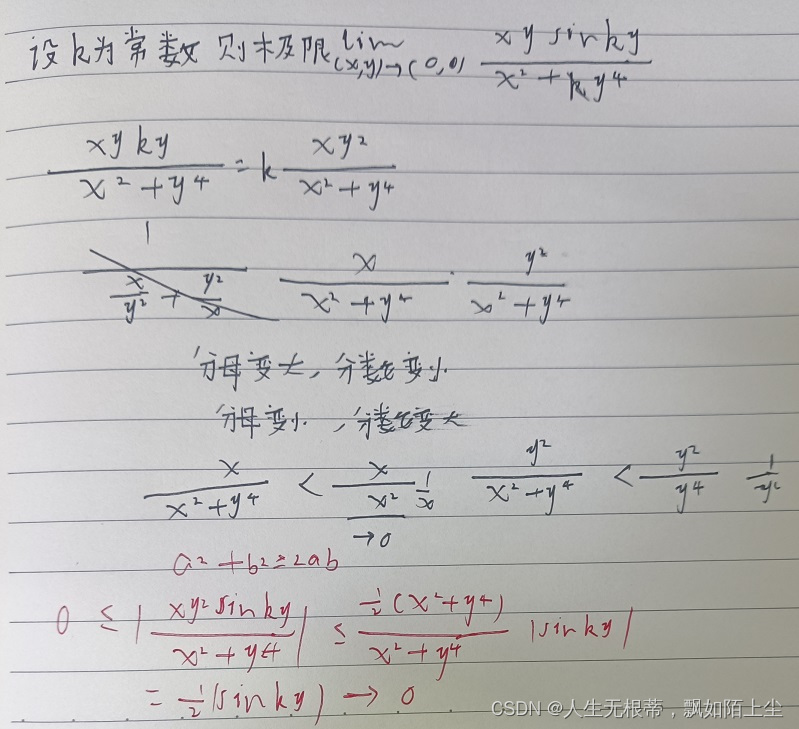 设k为常数 则求极限 lim (x,y)→(0,0) xy sinky / x² + ky⁴
xy ky / x² + y⁴ = k xy² / x² + y⁴
1 / x/y² + y²/x   x / x² + y⁴ · y² / x² + y⁴
分母变大，分数变小
分母变小，分数变大
x / x² + y⁴ < x / x² 1/x   y² / x² + y⁴ < y² / y⁴   1 / y²
→0
a² + b² ≥ 2ab
0 ≤ | xy² sinky / x² + y4 | ≤ ½(x² + y⁴) / x² + y⁴ |sinky|
= ½|sinky| → 0
CSDN @人生无根蒂，飘如陌上尘